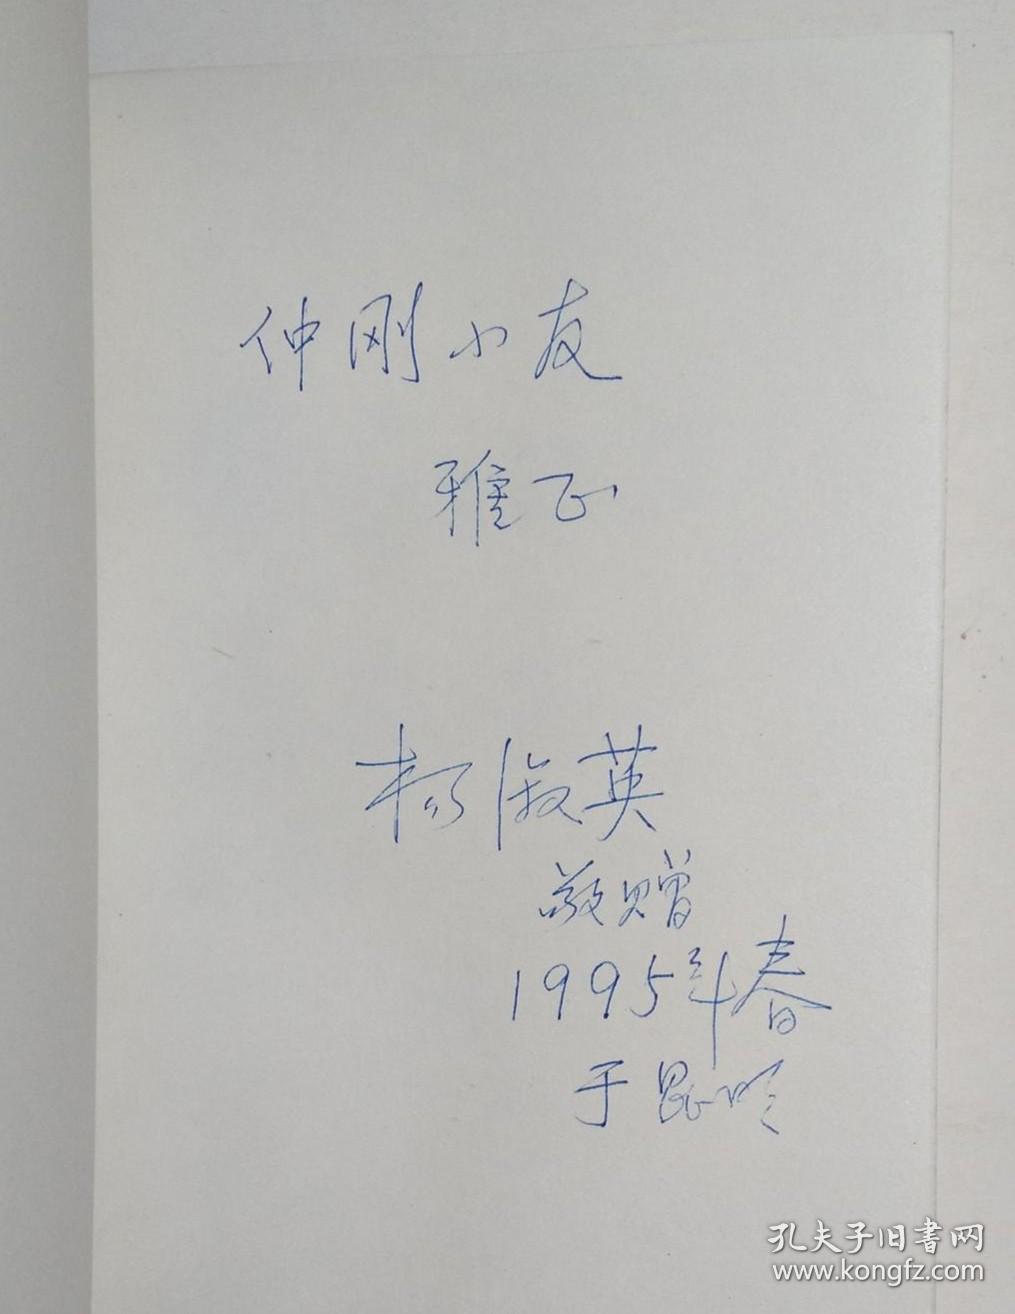 仲刚小友
雅正
杨淑英
敬赠
1995年春
于昆明
孔夫子旧書网
www.kongfz.com